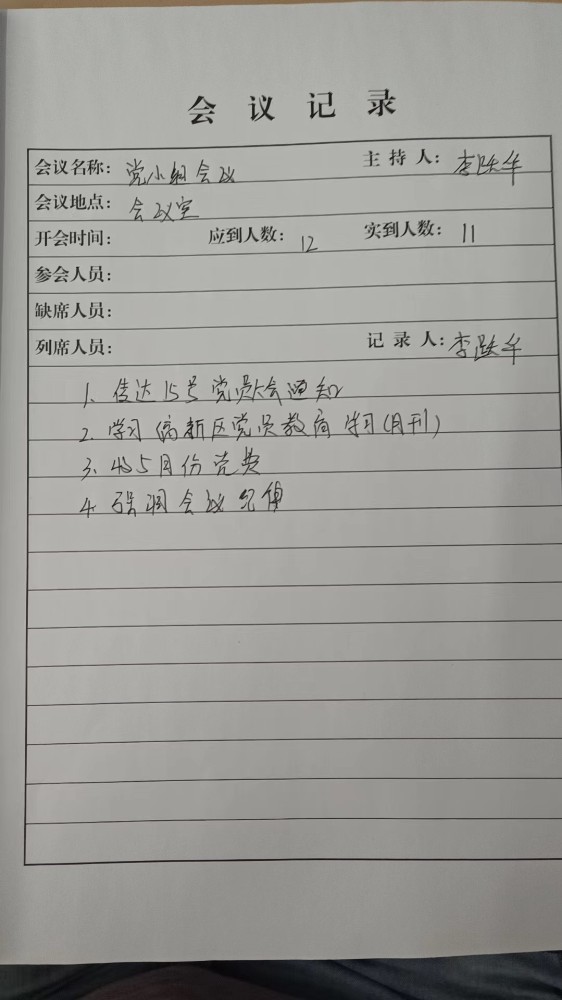 会议记录
会议名称：党小组会议 主持人：李跃华
会议地点：会议室
开会时间： 应到人数：12 实到人数：11
参会人员：
缺席人员：
列席人员： 记录人：李跃华
1. 传达15号党员大会通知
2. 学习高新区党员教育学习(月刊)
3. 收5月份党费
4. 强调会议纪律